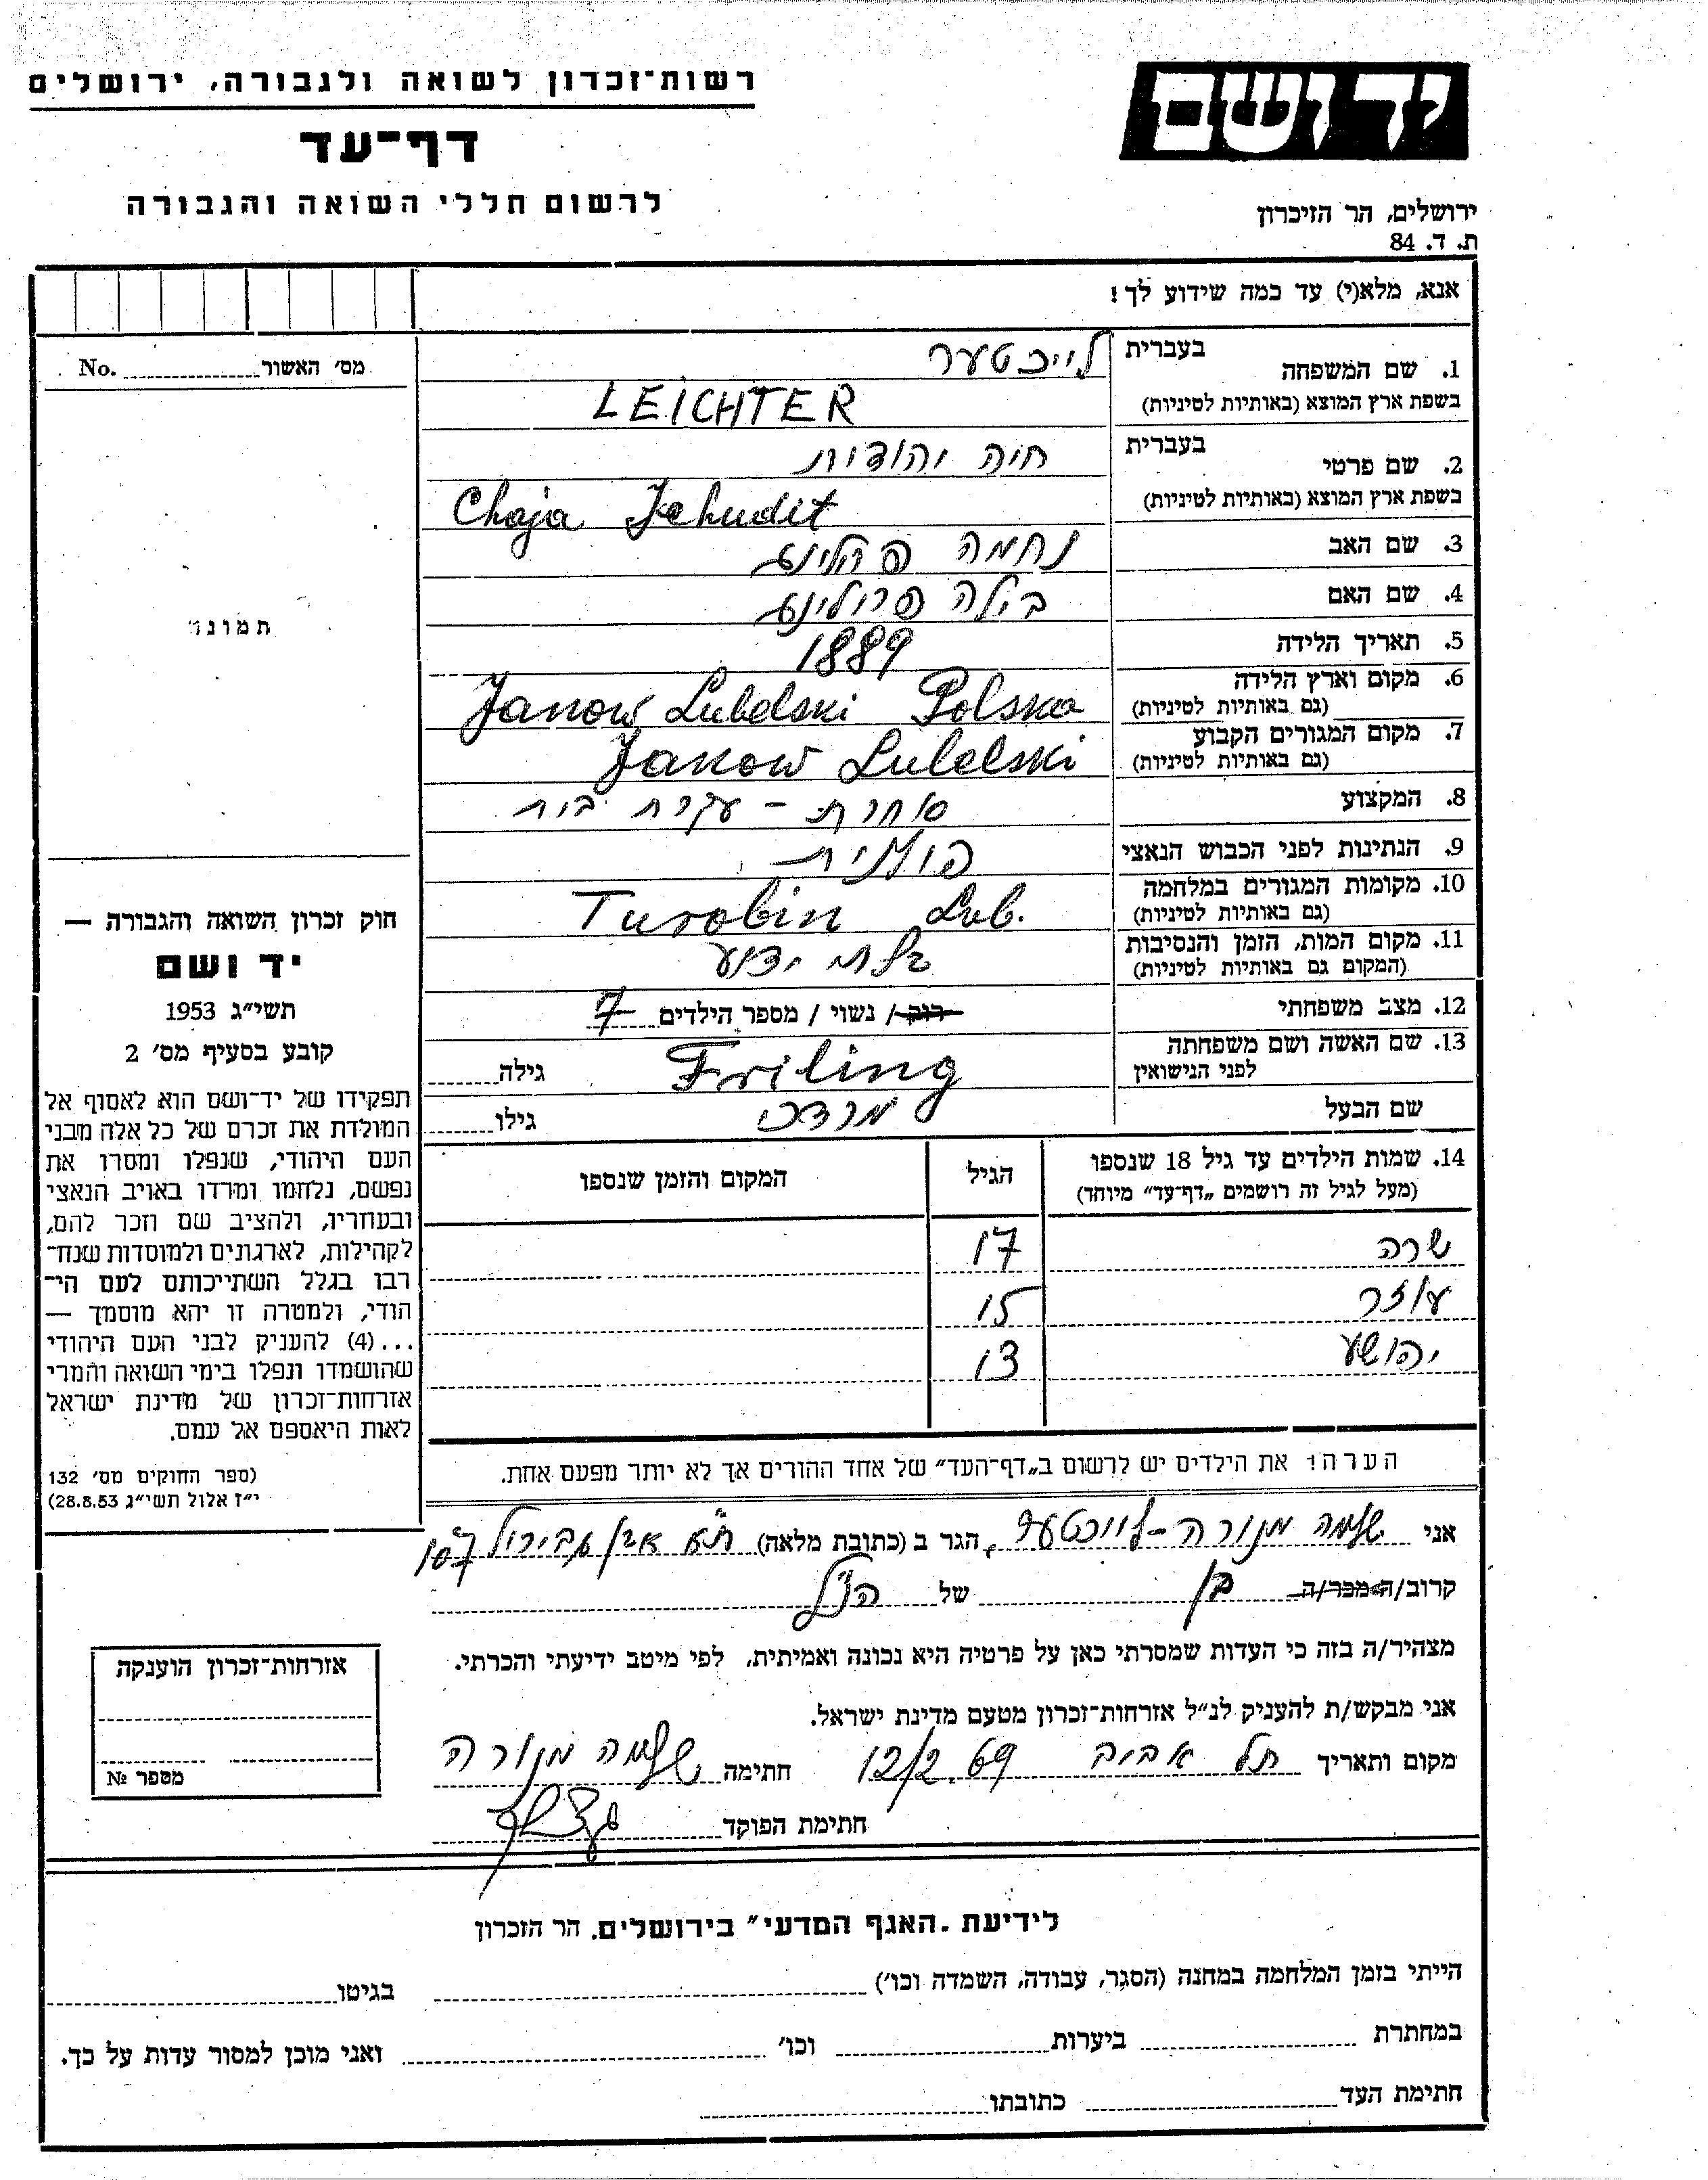 רשות־זכרון לשואה ולגבורה, ירושלים
יד ושם
דף־עד
לרשום חללי השואה והגבורה
ירושלים, הר הזיכרון
ת. ד. 84
אנא, מלא(י) עד כמה שידוע לך!
1. שם המשפחה
בעברית לייכטער
בשפת ארץ המוצא (באותיות לטיניות) LEICHTER
2. שם פרטי
בעברית חיה יהודית
בשפת ארץ המוצא (באותיות לטיניות) Chaja Jehudit
3. שם האב נחמה
4. שם האם בילה פרילינג
5. תאריך הלידה 1889
6. מקום וארץ הלידה
(גם באותיות לטיניות) Janow Lubelski Polska
7. מקום המגורים הקבוע
(גם באותיות לטיניות) Janow Lubelski
8. המקצוע סוחרת - עקרת בית
9. הנתינות לפני הכבוש הנאצי פולנית
10. מקומות המגורים במלחמה
(גם באותיות לטיניות) Turobin Lub.
11. מקום המות, הזמן והנסיבות
(המקום גם באותיות לטיניות) בלתי ידוע
12. מצב משפחתי רוק / נשוי / מספר הילדים 7
13. שם האשה ושם משפחתה
לפני הנישואין Friling גילה
שם הבעל מרדכי גילו
14. שמות הילדים עד גיל 18 שנספו
(מעל לגיל זה רושמים „דף־עד" מיוחד)
הגיל
המקום והזמן שנספו
שרה 17
עוזר 15
יהושע 13
הערה: את הילדים יש לרשום ב„דף־העד" של אחד ההורים אך לא יותר מפעם אחת.
אני שלמה מנורה-לייכטער, הגר ב (כתובת מלאה) ת"א אבן גבירול 107
קרוב/ה מכר/ה בן של הנ"ל
מצהיר/ה בזה כי העדות שמסרתי כאן על פרטיה היא נכונה ואמיתית, לפי מיטב ידיעתי והכרתי.
אני מבקש/ת להעניק לנ"ל אזרחות־זכרון מטעם מדינת ישראל.
מקום ותאריך תל אביב 12/2.69 חתימה שלמה מנורה
חתימת הפוקד
מס' האשור No.
תמונה
חוק זכרון השואה והגבורה —
יד ושם
תשי"ג 1953
קובע בסעיף מס' 2
תפקידו של יד־ושם הוא לאסוף אל
המולדת את זכרם של כל אלה מבני
העם היהודי, שנפלו ומסרו את
נפשם, נלחמו ומרדו באויב הנאצי
ובעוזריו, ולהציב שם וזכר להם,
לקהילות, לארגונים ולמוסדות שנח־
רבו בגלל השתייכותם לעם הי־
הודי, ולמטרה זו יהא מוסמך —
...(4) להעניק לבני העם היהודי
שהושמדו ונפלו בימי השואה והמרי
אזרחות־זכרון של מדינת ישראל
לאות היאספם אל עמם.
(ספר החוקים מס' 132
י"ז אלול תשי"ג 28.8.53)
אזרחות־זכרון הוענקה
מספר №
לידיעת „האגף המדעי" בירושלים, הר הזכרון
הייתי בזמן המלחמה במחנה (הסגר, עבודה, השמדה וכו') בגיטו
במחתרת ביערות וכו' ואני מוכן למסור עדות על כך.
חתימת העד כתובתו